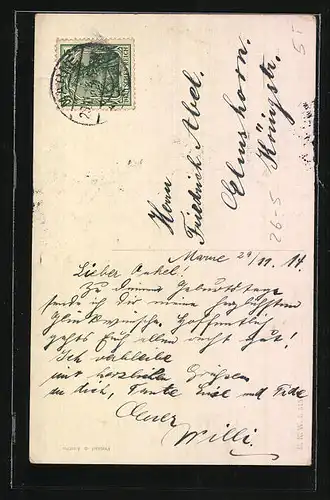 Herrn
Friedrich Abel.
Elmshorn.
Königstr.
26-5
Marne 29/11. 14.
Lieber Onkel!
Zu Deinem Geburtstage
sende ich Dir meine herzlichsten
Glückwünsche. Hoffentlich
gehts Euch allen recht gut!
Ich verbleibe
mit herzlichen Grüßen
an dich, Tante und
Euer
Willi.